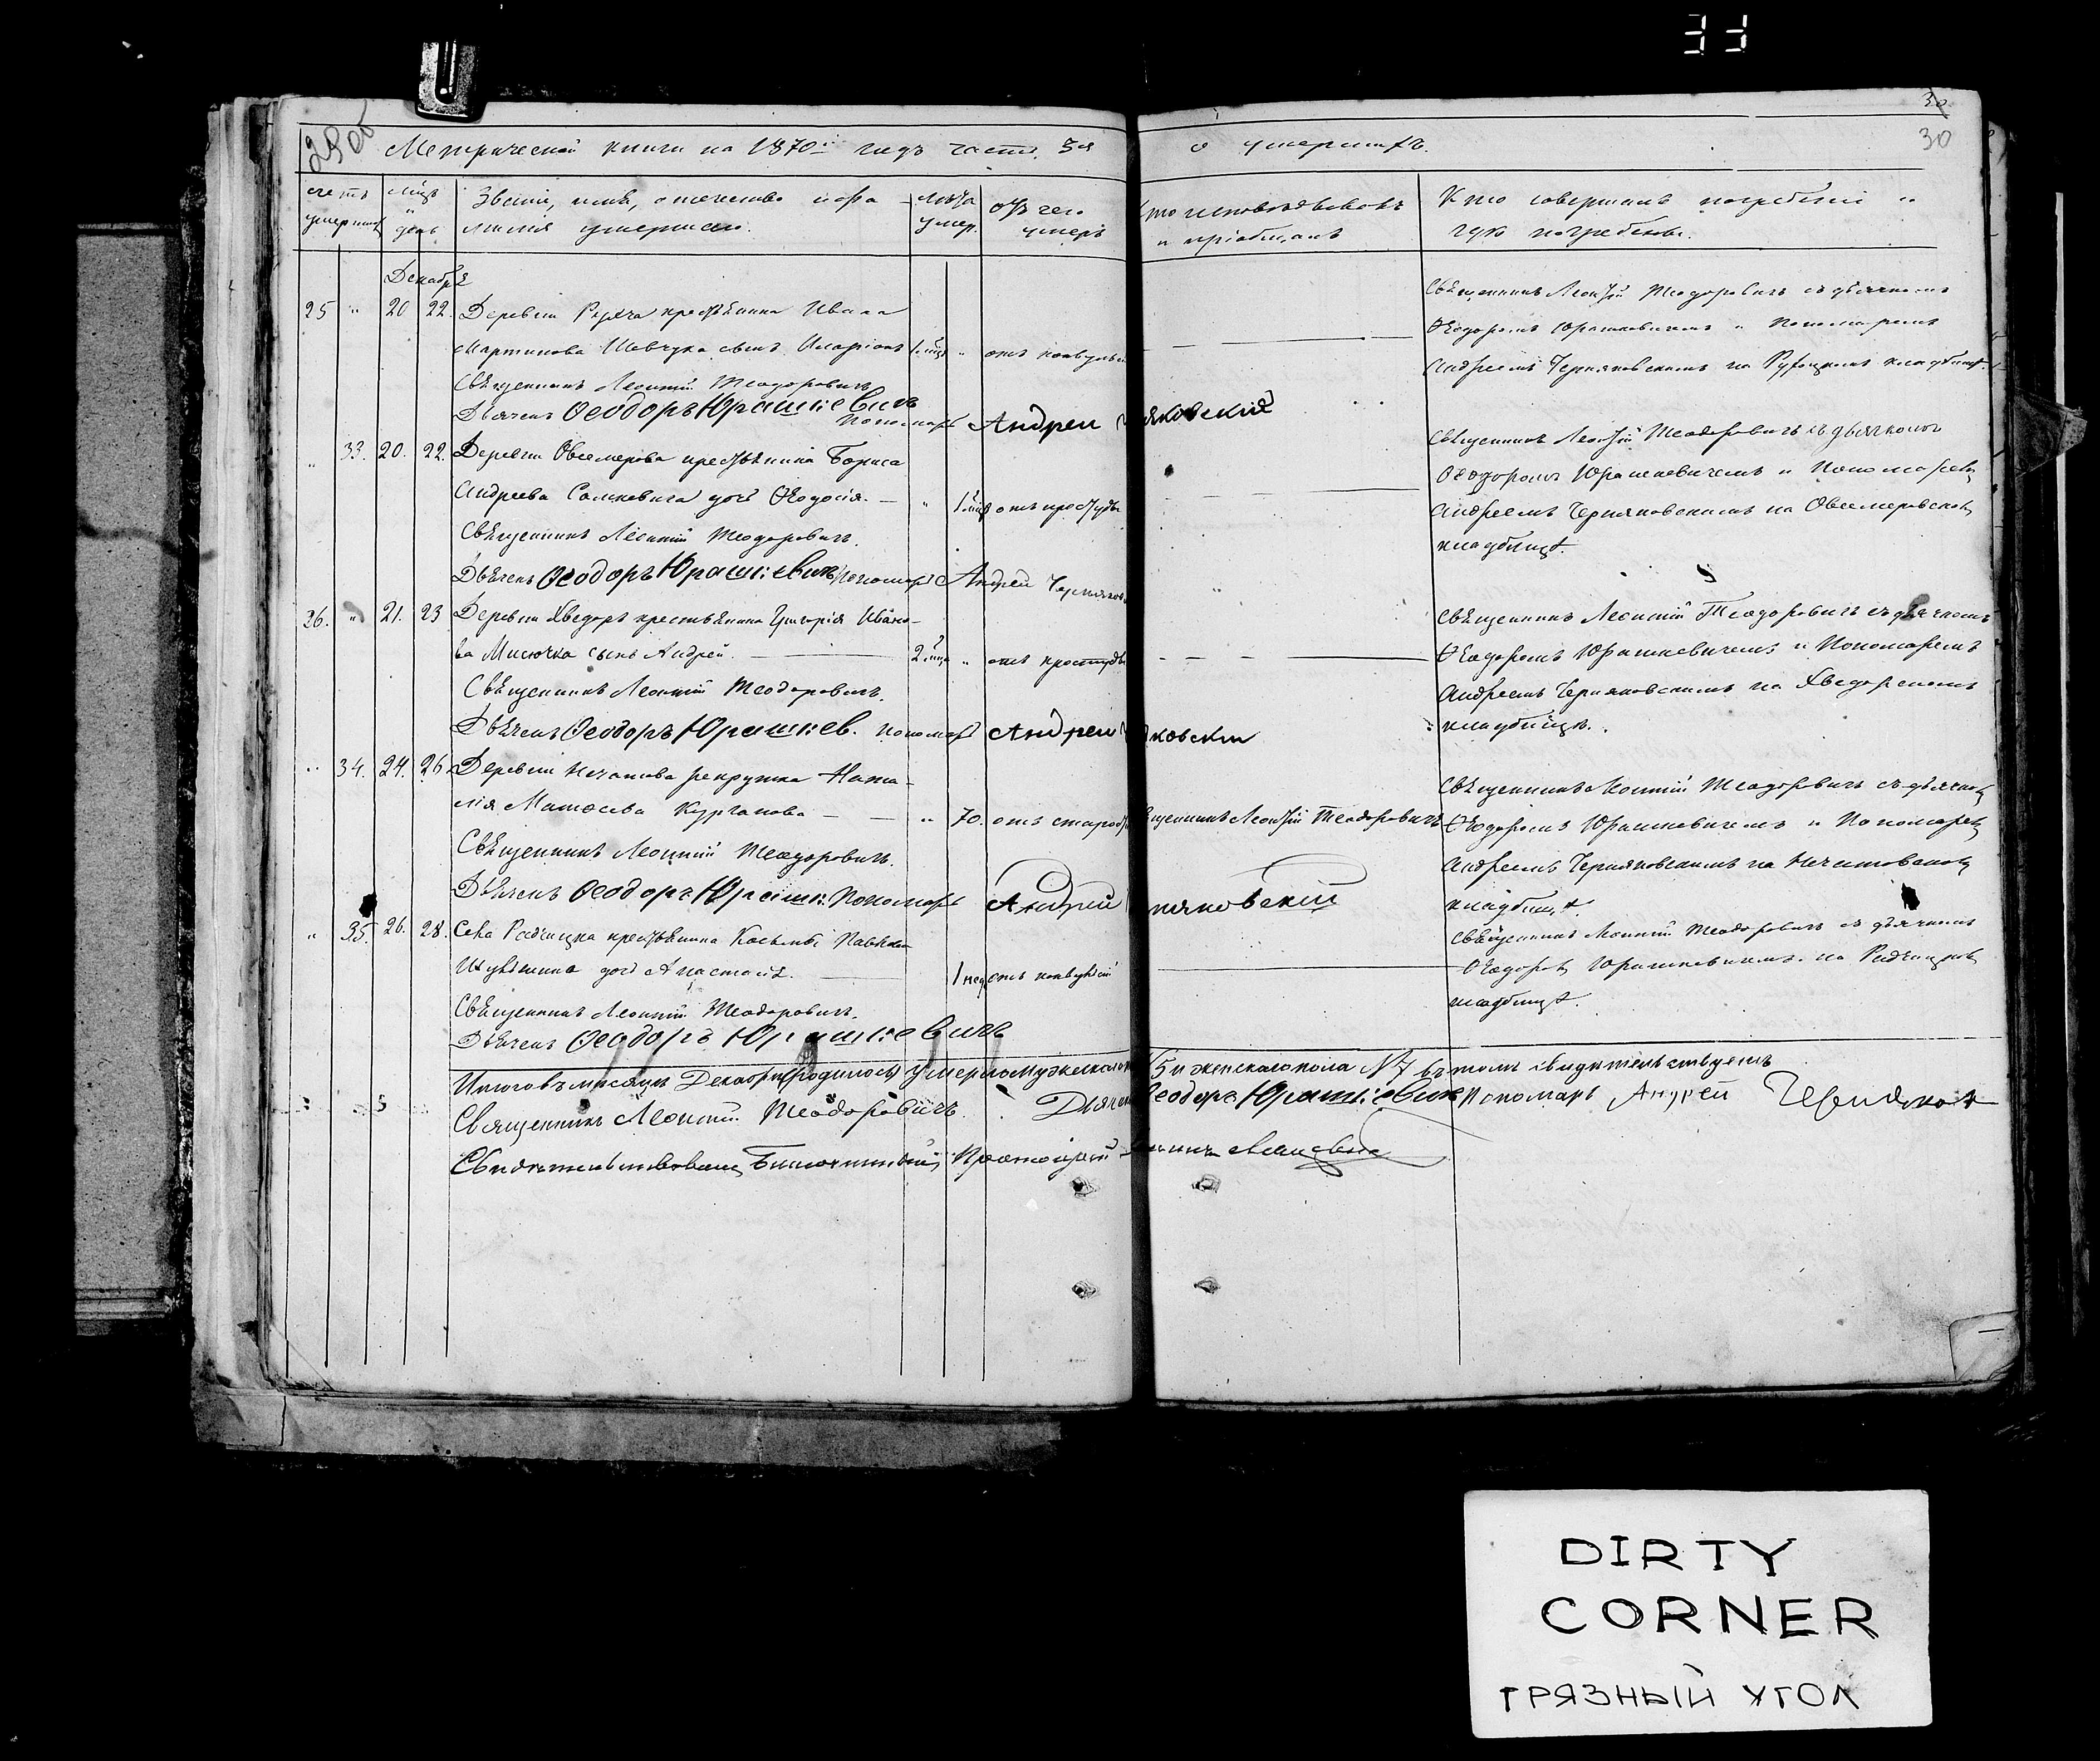 33
30
29 об
30
Метрической книги на 1870й годъ часть 3я о умершихъ.
счетъ умершихъ
мцъ и день
Званіе, имя, отечество и фамилія умершаго.
лѣта умер.
отъ чего умеръ
Кто исповѣдывалъ и пріобщалъ
Кто совершалъ погребеніе и гдѣ погребены.
Декабрь
25 " 20 22. Деревни крестьянина Ивана
Мартинова Шевчука сынъ Иларіонъ 1 мцъ " отъ конвульсій
Священникъ Леонтій Теодоровичъ съ дьячкомъ
Ѳеодоромъ Юрашкевичемъ и Пономаремъ
Андреемъ Черняковскимъ на кладбищѣ.
Священникъ Леонтій Теодоровичъ
Дьячекъ Ѳеодоръ Юрашкевичъ
Пономарь Андрей Черняковскій
" 33. 20. 22. Деревни Овсемерова крестьянина Бориса
Андреева Салкевича дочь Ѳеодосія. " 1 мцъ отъ простуды
Священникъ Леонтій Теодоровичъ съ дьячкомъ
Ѳеодоромъ Юрашкевичемъ и Пономаремъ
Андреемъ Черняковскимъ на Овсемеровскомъ
кладбищѣ.
Священникъ Леонтій Теодоровичъ.
Дьячекъ Ѳеодоръ Юрашкевичъ Пономарь Андрей Черняков
26. " 21. 23 Деревни Хведоръ крестьянина Григорія Ивано-
ва Мисючка сынъ Андрей. 2 мца " отъ простуды
Священникъ Леонтій Теодоровичъ съ дьячкомъ
Ѳеодоромъ Юрашкевичемъ и Пономаремъ
Андреемъ Черняковскимъ на Хведорскомъ
кладбищѣ.
Священникъ Леонтій Теодоровичъ.
Дьячекъ Ѳеодоръ Юрашкев. Пономарь Андрей Черняковскій
" 34. 24. 26. Деревни Нечатова рекрутка Ната-
лія Матѳеева Курганова " 70. отъ старости Священникъ Леонтій Теодоровичъ
Священникъ Леонтій Теодоровичъ съ дьячкомъ
Ѳеодоромъ Юрашкевичемъ и Пономаремъ
Андреемъ Черняковскимъ на Нечатовскомъ
кладбищѣ.
Священникъ Леонтій Теодоровичъ.
Дьячекъ Ѳеодоръ Юрашк: Пономарь Андрей Черняковскій
" 35. 26. 28. Села Радчицка крестьянина Косьмы Павлова
дочь Анастасія. 1 нед. отъ конвульсій
Священникъ Леонтій Теодоровичъ съ дьячкомъ
Ѳеодоромъ Юрашкевичемъ на Радчицкомъ
кладбищѣ.
Священникъ Леонтій Теодоровичъ.
Дьячекъ Ѳеодоръ Юрашкевичъ
Итого въ мѣсяцѣ Декабрѣ (родилось) умерло мужескаго 5 и женскаго пола № 7 въ томъ свидѣтельствуемъ
Священникъ Леонтій Теодоровичъ Дьячекъ Ѳеодоръ Юрашкевичъ Пономарь Андрей Черняков
Свидѣтельствовалъ Благочинный Протоіерей
DIRTY
CORNER
ГРЯЗНЫЙ УГОЛ